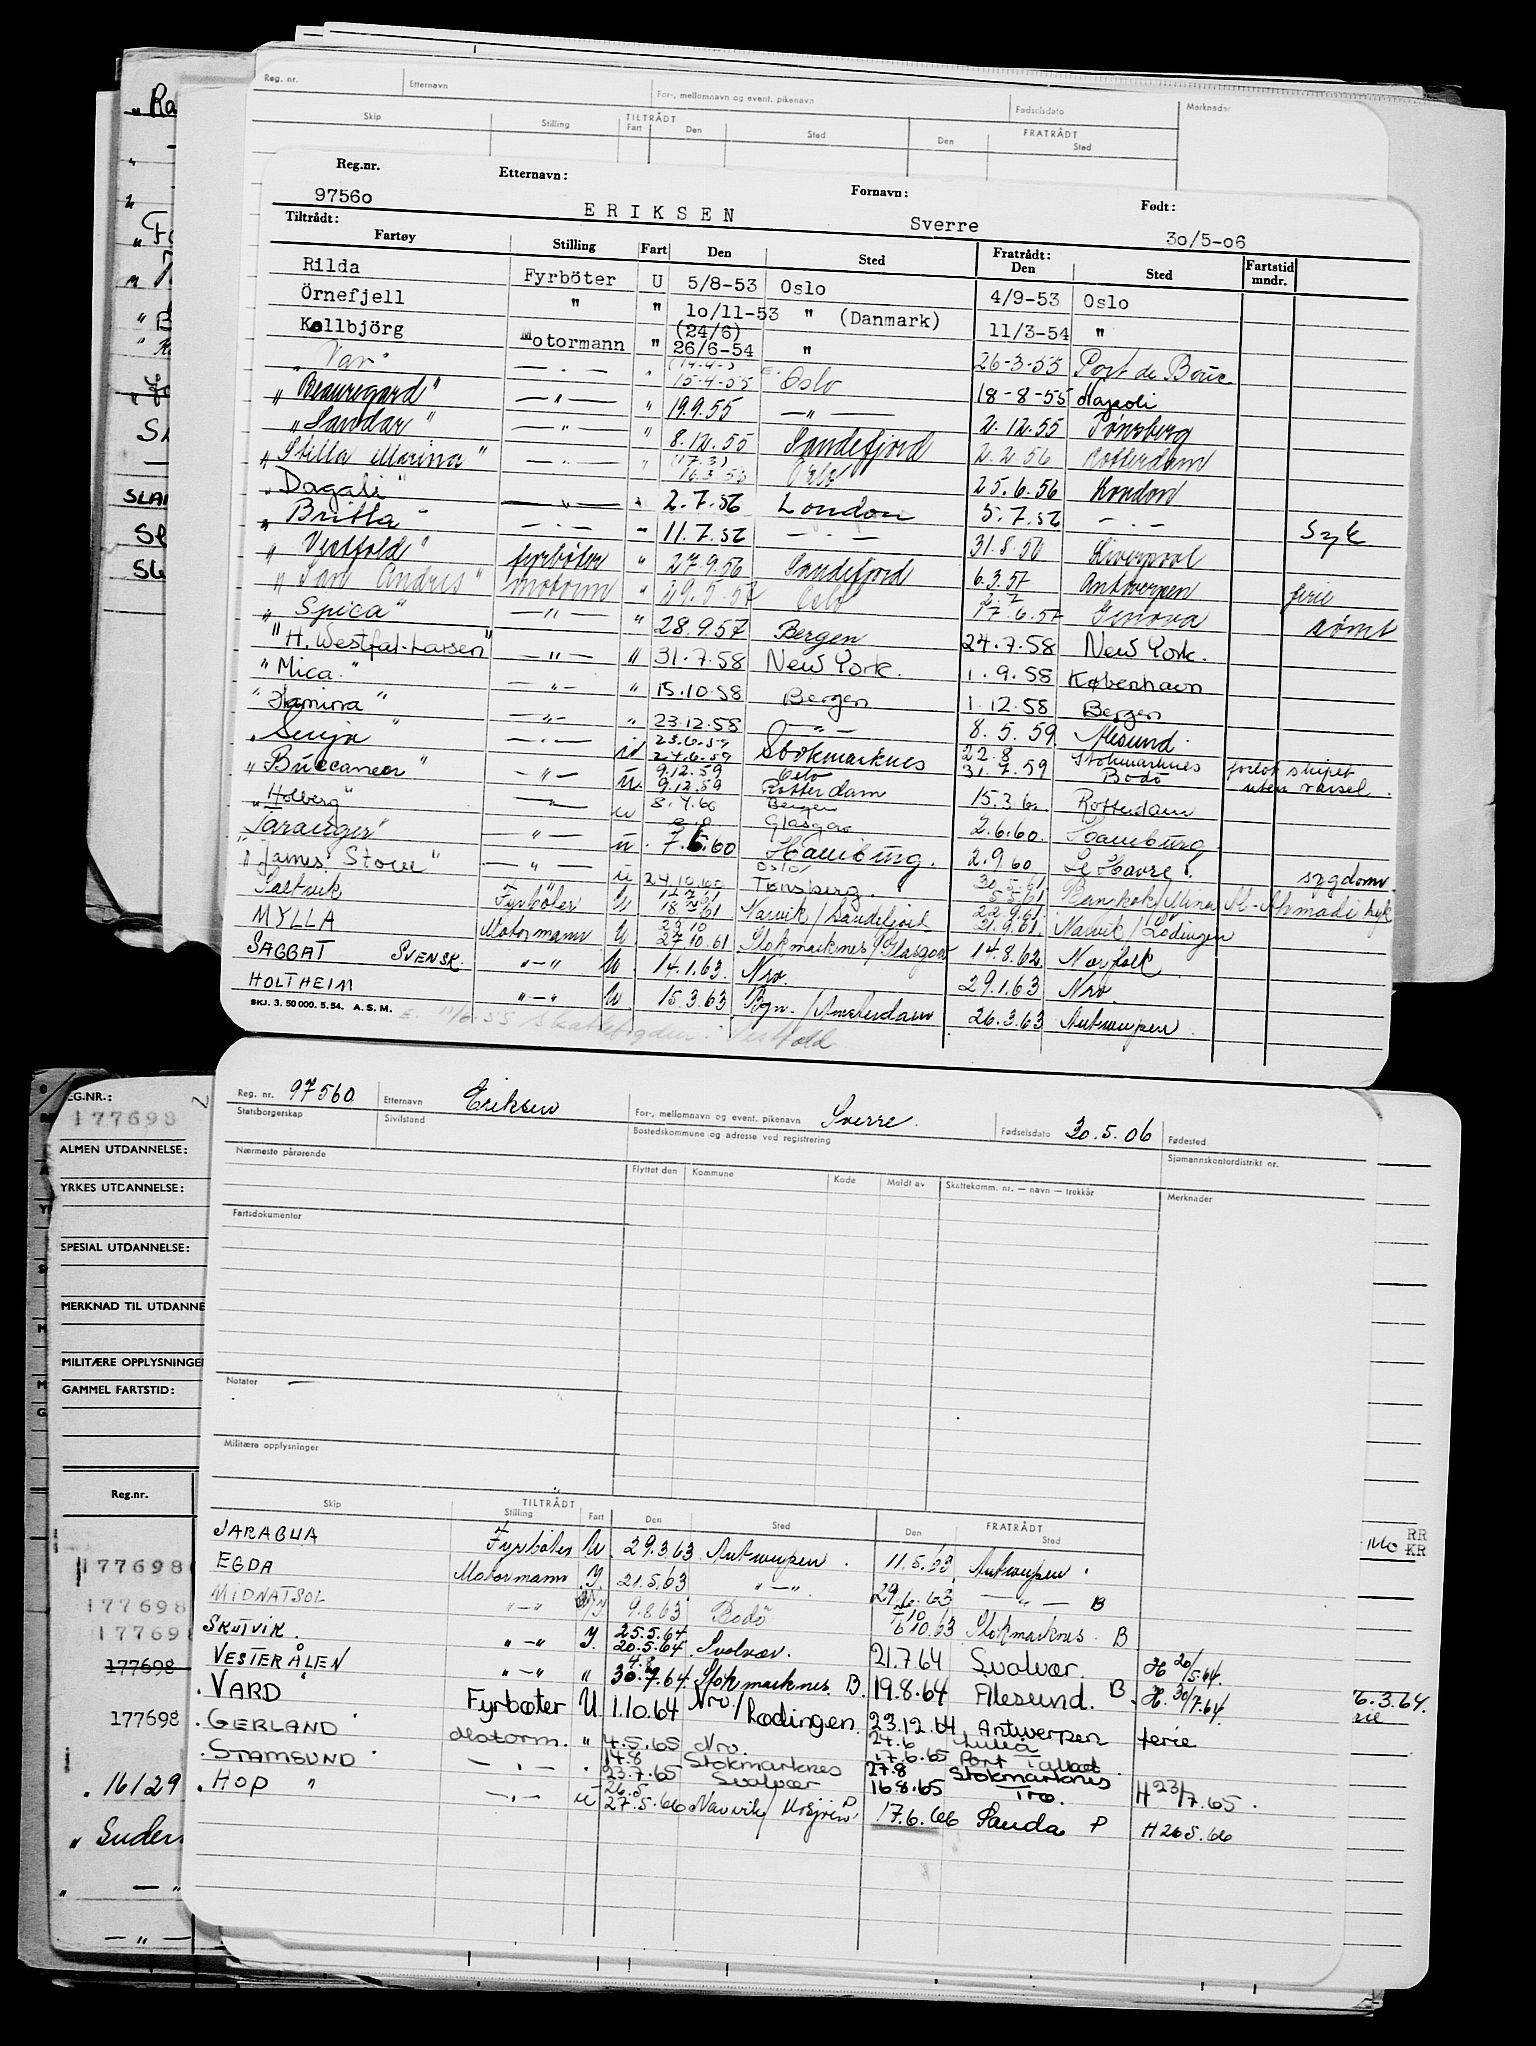 Reg. nr. Etternavn For-, mellomnavn og event. pikenavn Fødselsdato Merknader
Skip Stilling TILTRÅDT Fart Den Sted FRATRÅDT Den Sted
Reg.nr. Etternavn: Fornavn: Født:
97560 ERIKSEN Sverre 30/5-06
Tiltrådt:
Fartøy Stilling Fart Den Sted Fratrådt: Den Sted Fartstid mndr.
Rilda Fyrböter U 5/8-53 Oslo 4/9-53 Oslo
Örnefjell " " 10/11-53 " (Danmark) 11/3-54 "
Kollbjörg Motormann " (24/6) 26/6-54 " 26-3-55 Port de Bouc
"Var" — " — " 15-4-55 Oslo 18-8-55 Napoli
"Beauregard" — " — " 19.9.55 — " — 2.12.55 Tönsberg
"Sandar" — " — " 8.12.55 Sandefjord 2.2 56 Rotterdam
"Stilla Marina" — " — " (17.3) 16.3 56 Oslo 25.6.56 London
"Dagali" — " — " 2.7.56 London 5.7.56 — " — Syk
"Britta" — " — " 11.7.56 — " — 31.8.56 Liverpool
"Vestfold" fyrböter " 27.9.56 Sandefjord 6.3.57 Antwerpen ferie
"San Andres" motorm " 29.5.57 Oslo 17.6.57 Genova römt
"Spica" — " — " 28.9.57 Bergen 24.7.58 New York.
"H. Westfal-Larsen" — " — " 31.7.58 New York. 1.9.58 København
"Mica" — " — " 15.10.58 Bergen 1.12.58 Bergen
"Lamina" — " — " 23.12.58 — " — 8.5.59 Ålesund.
"Senja" — " — 23.6.59 24.6.59 Stokmarknes 22.8 31.7.59 Stokmarknes Bodö forlot skipet uten varsel.
"Buccaneer" — " — u. 9.12.59 9.12.59 Oslo Rotterdam 15.3.60 Rotterdam
"Holberg" — " — u 8.4.60 Bergen Glasgow 2.6.60. Hamburg
"Taranger" — " — u. 7.6.60 Hamburg. 2.9.60 Le Havre. sygdom
"James Stove" — " — u 24.10.60 Oslo/ Tønsberg. 30.5.61 5.5.61 Bankok/Mina Al-Ahmadi syk
Saltvik Fyrböter U 18.7.61 Narvik/Sandefjord 22.9.61. 21.9.61. Narvik/Lödingen
MYLLA Motormann U. 23.10 27.10.61 Stokmarknes/Glasgow 14.8.62 Norfolk
SAGGAT SVENSK. " — " U. 14.1.63. Nrv. 29.1.63 Nrv.
HOLTHEIM " — " U. 15.3.63 Bgn./Amsterdam 26.3.63 Antwerpen.
SKJ. 3. 50 000. 5. 54. A. S. M. E. 11/6-55 Skattefogden i Vestfold
Reg. nr. 97560 Etternavn Eriksen For-, mellomnavn og event. pikenavn Sverre. Fødselsdato 30.5.06 Fødested
Statsborgerskap Sivilstand Bostedskommune og adresse ved registrering Sjømannskontordistrikt nr.
Nærmeste pårørende Flyttet den Kommune Kode Meldt av Skattekomm. nr. — navn — trekkår Merknader
Fartsdokumenter
Notater
Militære opplysninger
Skip TILTRÅDT Stilling Fart Den Sted FRATRÅDT Den Sted
JARAGUA Fyrböter U. 29.3.63 Antwerpen. 11.5.63 Antwerpen.
EGDA Motormann Y. 21.5.63 " — " 29.6.63 — " — B
MIDNATSOL " — " 9.8.63 Bodö 10.63 Stokmarknes. B
SKUTVIK. " — " Y. 25.5.64 20.5.64 Svolvær. 21.7.64 Svolvær. H 20/5.64.
VESTERÅLEN " — " " 4.8 30.7.64 Stokmarknes. B. 19.8.64 Ålesund. B. H. 30/7.64.
. VARD Fyrbøter U 1.10.64 Nrv./Lødingen 23.12.64 Antwerpen ferie
. GERLAND Motorm. " 4.5.65 Nrv. 24.6 17.6.65 Luleå Port Talbot.
. STAMSUND — " — . 14.8 23.7.65 Stokmarknes Svolvær 27.8 16.8.65 Stokmarknes Tro. H 23/7.65.
. HOP " — " — u 26.5. 27.5.66 Narvik/Mosjøen P 17.6.66 Sauda P H 26 5.66
REG.NR.:
177698
ALMEN UTDANNELSE:
YRKES UTDANNELSE:
SPESIAL UTDANNELSE:
MERKNAD TIL UTDANNE
MILITÆRE OPPLYSNINGER
GAMMEL FARTSTID:
Reg.nr.
177698
177698
17769
177698
177698
. 16129
RR
KR
6.3.64.